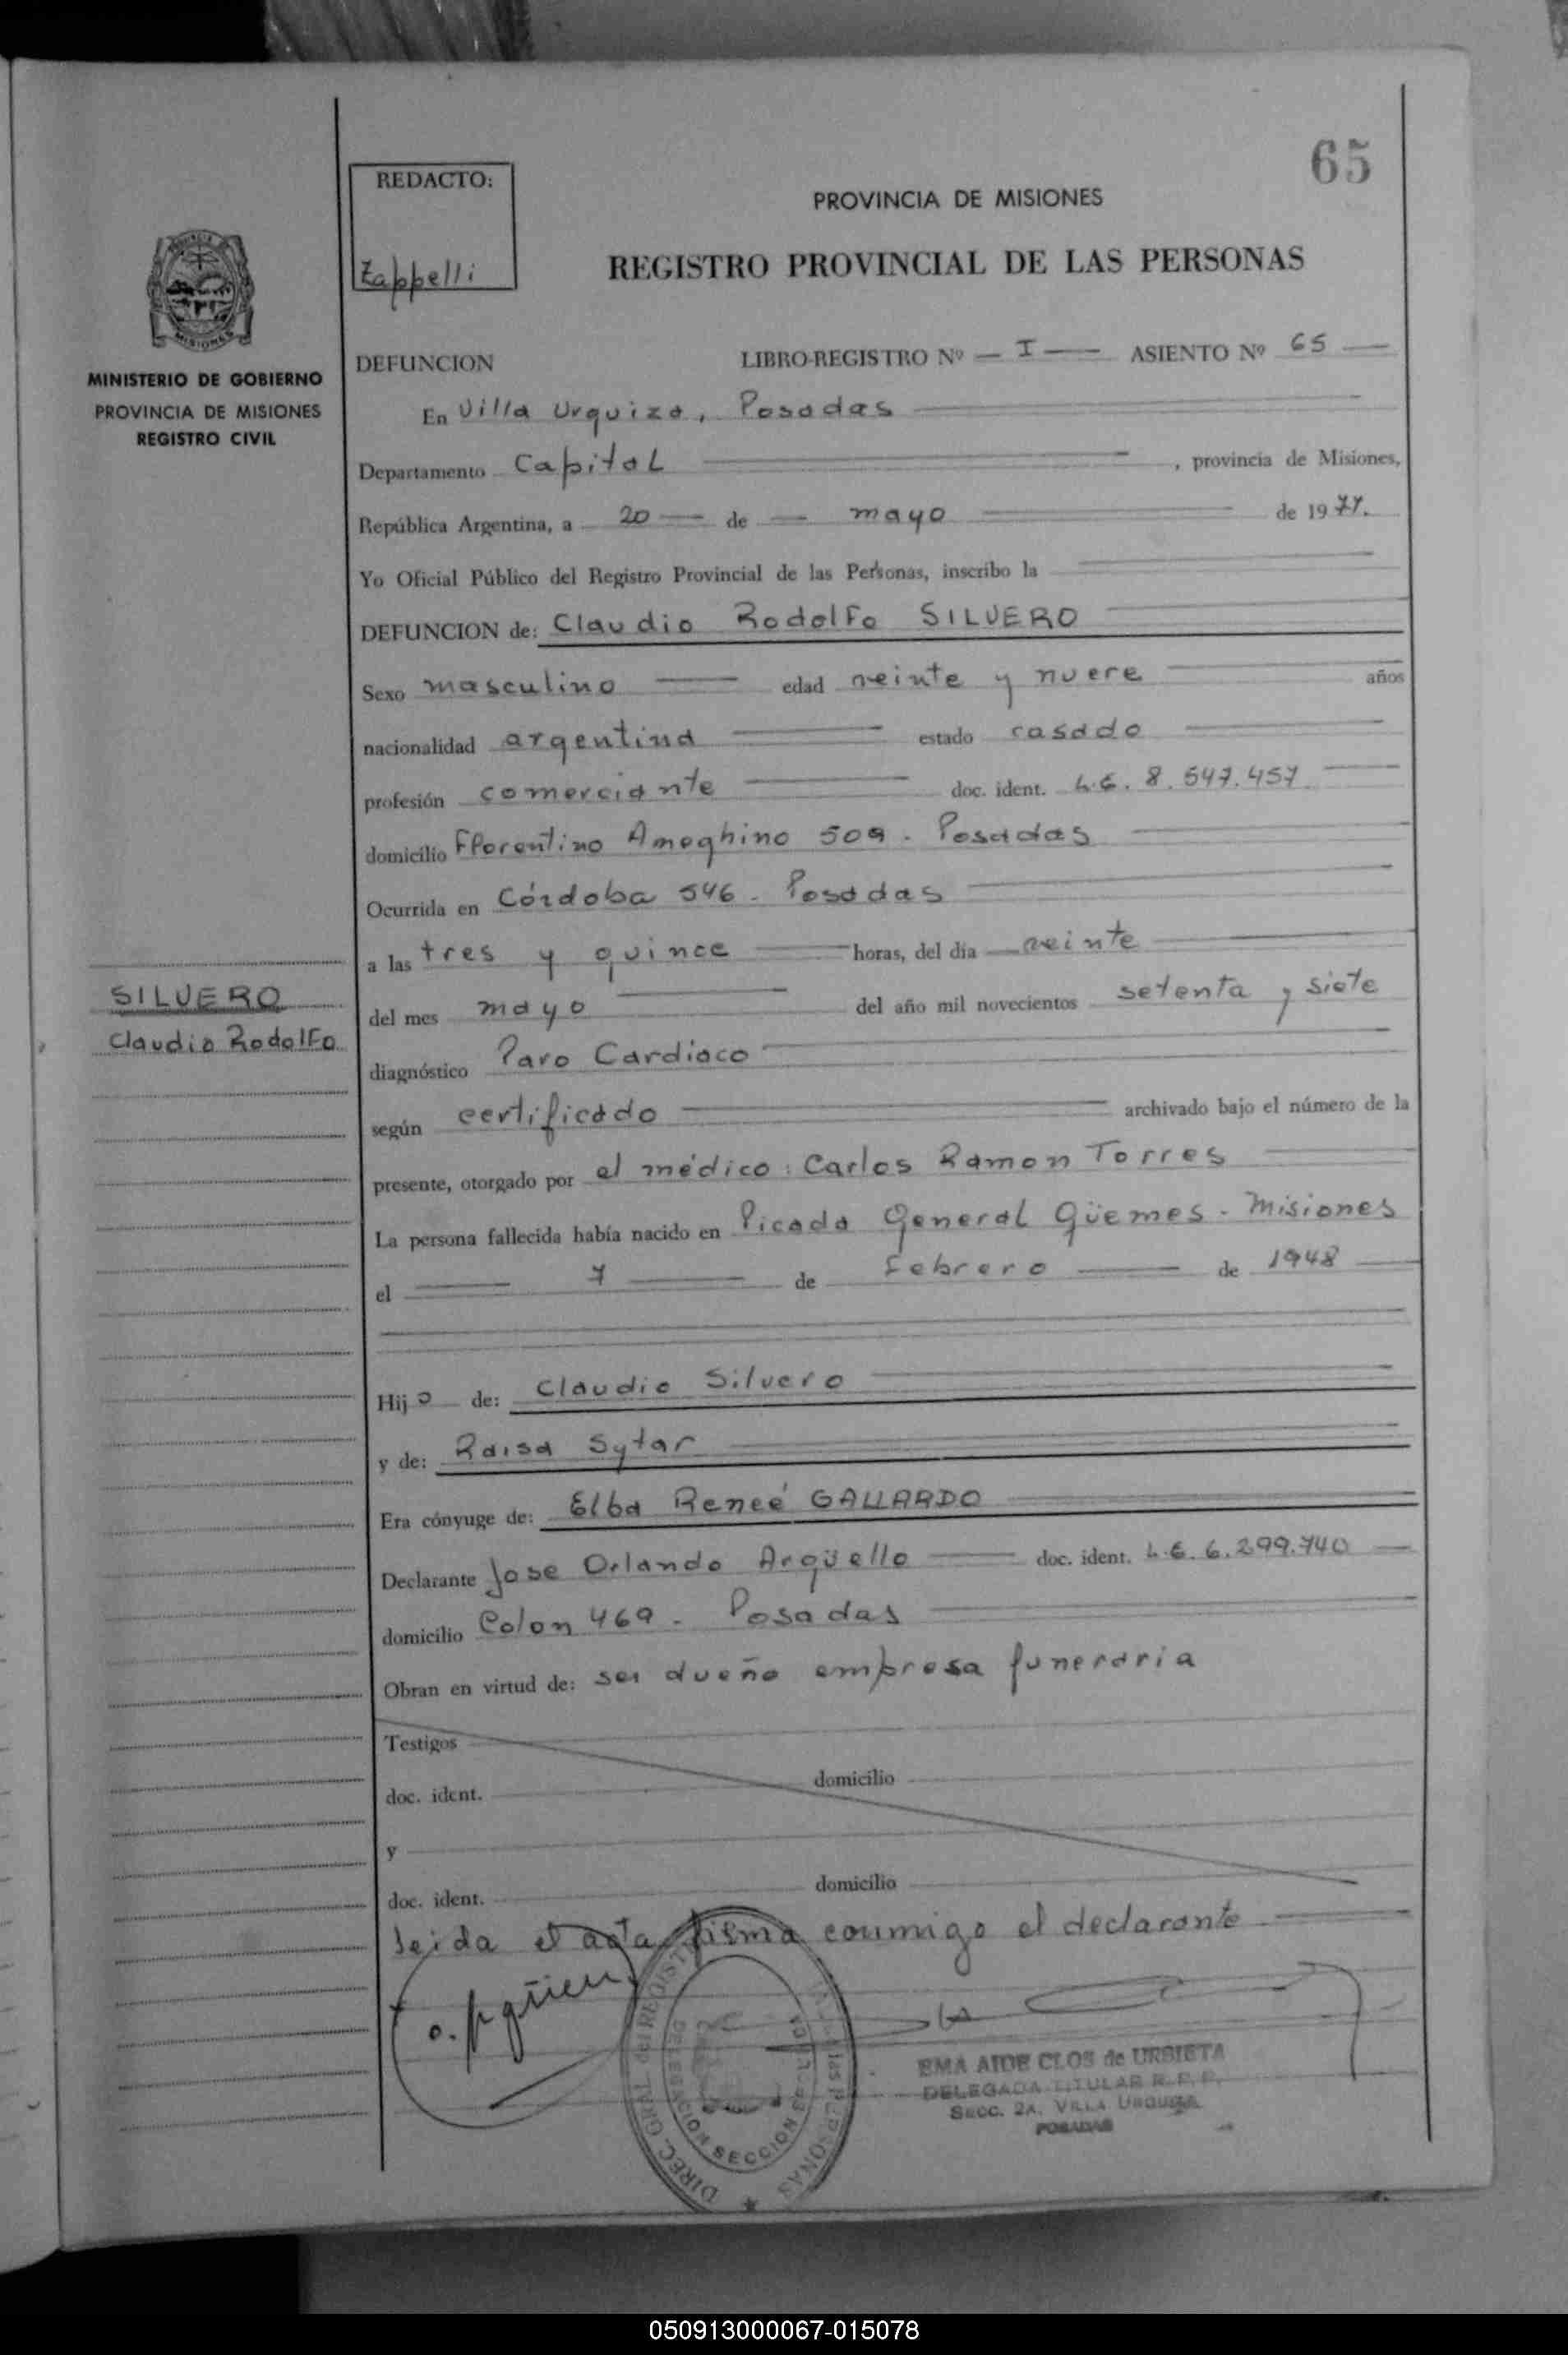 65
REDACTO:
Zappelli
PROVINCIA DE MISIONES
REGISTRO PROVINCIAL DE LAS PERSONAS
MISIONES
MINISTERIO DE GOBIERNO
PROVINCIA DE MISIONES
REGISTRO CIVIL
DEFUNCION LIBRO-REGISTRO Nº — I — ASIENTO Nº 65 —
En Villa Urquiza, Posadas
Departamento Capital , provincia de Misiones,
República Argentina, a 20 — de — mayo de 1977.
Yo Oficial Público del Registro Provincial de las Personas, inscribo la
DEFUNCION de: Claudio Rodolfo SILVERO
Sexo masculino edad veinte y nueve años
nacionalidad argentina estado casado
profesión comerciante doc. ident. L.E. 8.547.457
domicilio Florentino Ameghino 509 - Posadas
Ocurrida en Córdoba 546 - Posadas
a las tres y quince horas, del día veinte
del mes mayo del año mil novecientos setenta y siete
diagnóstico Paro Cardiaco
según certificado archivado bajo el número de la
presente, otorgado por el médico: Carlos Ramon Torres
La persona fallecida había nacido en Picada General Güemes - Misiones
el 7 de Febrero de 1948
Hijo de: Claudio Silvero
y de: Raisa Sytar
Era cónyuge de: Elba Reneé GALLARDO
Declarante Jose Orlando Argüello doc. ident. L.E. 6.299.740
domicilio Colon 469 - Posadas
Obran en virtud de: ser dueño empresa funeraria
Testigos
doc. ident. domicilio
y
doc. ident. domicilio
Leida el acta firma conmigo el declarante
SILVERO
Claudio Rodolfo
DIREC. GRAL del REGISTRO de las PERSONAS
DELEGACION SECCION
EMA AIDE CLOS de URBIETA
DELEGADA TITULAR R. P. P.
SECC. 2A. VILLA URQUIZA
POSADAS
050913000067-015078